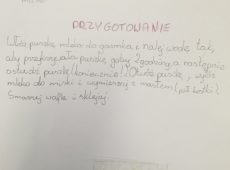 PRZYGOTOWANIE
Włóż puszkę mleka do garnka, nalej wodę tak,
aby przykrywała puszkę gotuj 2 godziny, a następnie
ostudź puszkę (koniecznie!). Otwórz puszkę, wyłóż
mleko do miski i wymieszaj z masłem (pół kostki).
Smaruj wafle i sklejaj.